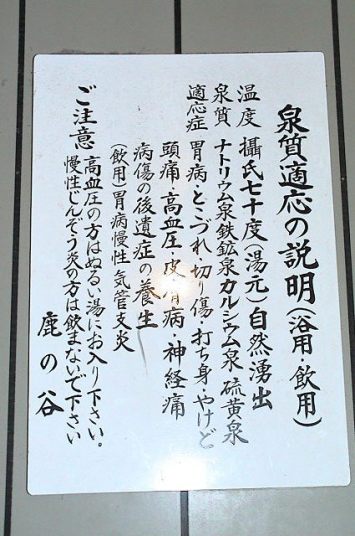 泉質適応の説明(浴用・飲用)
温度 攝氏七十度(湯元)自然湧出
泉質 ナトリウム泉鉄鉱泉カルシウム泉 硫黄泉
適応症 胃病・とこづれ・切り傷・打ち身・やけど
頭痛・高血圧・皮膚病・神経痛
病傷の後遺症の養生
(飲用)胃病慢性 気管支炎
ご注意 高血圧の方はぬるい湯にお入り下さい。
慢性じんぞう炎の方は飲まないで下さい
鹿の谷